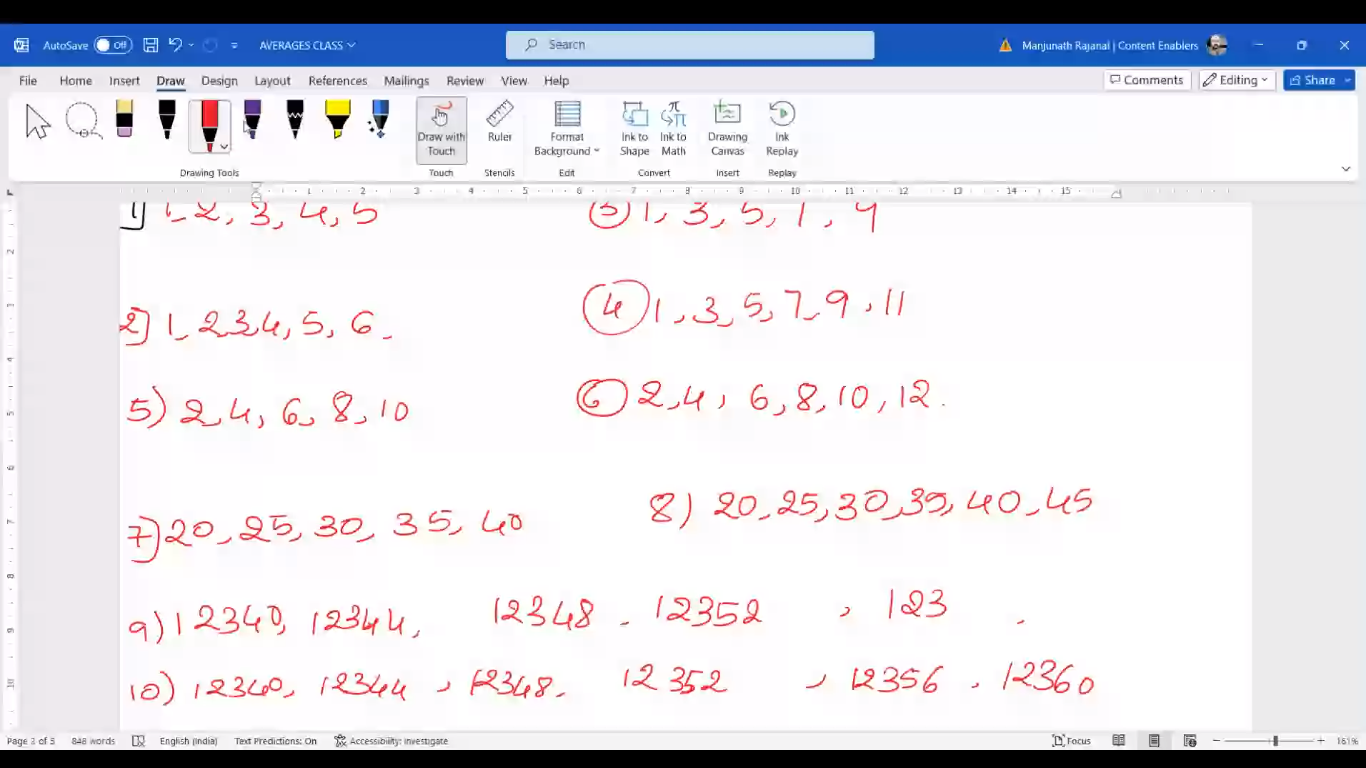 AutoSave Off AVERAGES CLASS Search Manjunath Rajanal | Content Enablers
File Home Insert Draw Design Layout References Mailings Review View Help Comments Editing Share
Draw with Touch Ruler Format Background Ink to Shape Ink to Math Drawing Canvas Ink Replay
Drawing Tools Touch Stencils Edit Convert Insert Replay
1 2 3 4 5 6 7 8 9 10 11 12 13 14 15
1) 1, 2, 3, 4, 5
3) 1, 3, 5, 7, 9
2) 1, 2, 3, 4, 5, 6,
4 1, 3, 5, 7, 9, 11
5) 2, 4, 6, 8, 10
6 2, 4, 6, 8, 10, 12.
7) 20, 25, 30, 35, 40
8) 20, 25, 30, 35, 40, 45
9) 12340, 12344, 12348, 12352, 123 ,
10) 12340, 12344, 12348, 12352, 12356, 12360
Page 2 of 5 848 words English (India) Text Predictions: On Accessibility: Investigate Focus 161%